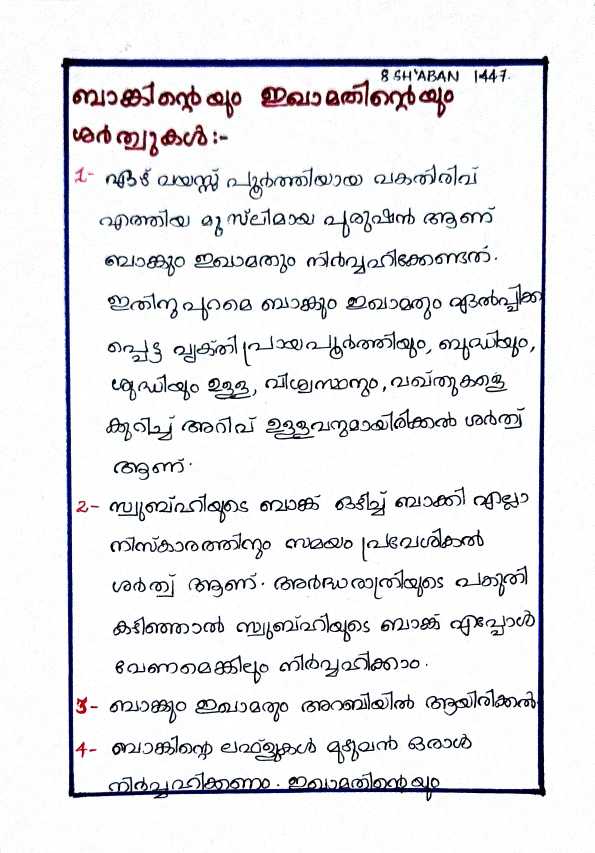 8 SH'ABAN 1447.
ബാങ്കിന്റെയും ഇഖാമതിന്റെയും
ശർത്വുകൾ:-
1- ഏഴ് വയസ്സ് പൂർത്തിയായ വകതിരിവ്
എത്തിയ മുസ്ലിമായ പുരുഷൻ ആണ്
ബാങ്കും ഇഖാമതും നിർവ്വഹിക്കേണ്ടത്.
ഇതിനു പുറമെ ബാങ്കും ഇഖാമതും ഏൽപ്പിക്ക
പ്പെട്ട വ്യക്തി പ്രായപൂർത്തിയും, ബുദ്ധിയും,
ശുദ്ധിയും ഉള്ള, വിശ്വസ്ഥനും, വഖ്തുകളെ
കുറിച്ച് അറിവ് ഉള്ളവനുമായിരിക്കൽ ശർത്വ്
ആണ്.
2- സ്വുബ്ഹിയുടെ ബാങ്ക് ഒഴിച്ച് ബാക്കി എല്ലാ
നിസ്കാരത്തിനും സമയം പ്രവേശിക്കൽ
ശർത്വ് ആണ്. അർദ്ധരാത്രിയുടെ പകുതി
കഴിഞ്ഞാൽ സ്വുബ്ഹിയുടെ ബാങ്ക് എപ്പോൾ
വേണമെങ്കിലും നിർവ്വഹിക്കാം.
3- ബാങ്കും ഇഖാമതും അറബിയിൽ ആയിരിക്കൽ
4- ബാങ്കിന്റെ ലഫ്ളുകൾ മുഴുവൻ ഒരാൾ
നിർവ്വഹിക്കണം. ഇഖാമതിന്റെയും